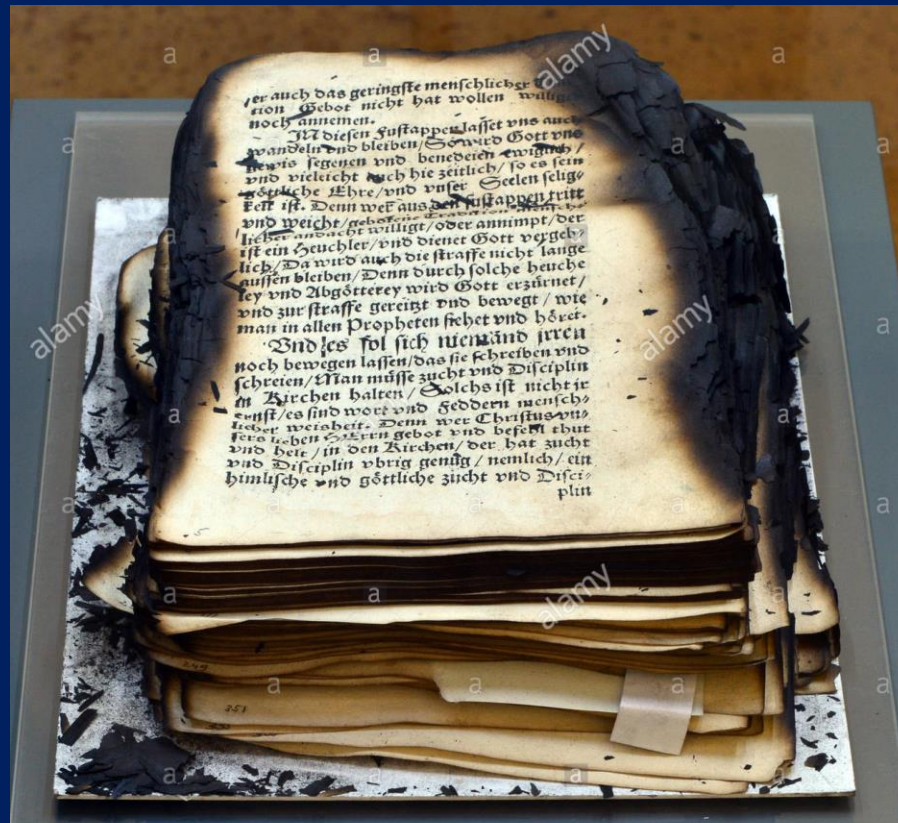 er auch das geringste menschlicher
tion Gebot nicht hat wollen willig
noch annemen.
IN diesen Fustappen lasset vns auch
wandeln vnd bleiben/So wird Gott vns
gewis segenen vnd benedeien ewiglich/
vnd vieleicht auch hie zeitlich/so es sein
göttliche Ehre/vnd vnser Seelen selig-
keit ist. Denn wer aus den fustappen tritt
vnd weicht/gebotene Tradition mensch-
licher andacht williget/oder annimpt/der
ist ein Heuchler/vnd dienet Gott vergeb-
lich/Da wird auch die straffe nicht lange
aussen bleiben/Denn durch solche heuche
ley vnd Abgötterey wird Gott erzürnet/
vnd zur straffe gereitzt vnd bewegt/wie
man in allen Propheten sihet vnd höret.
Vnd es sol sich niemand irren
noch bewegen lassen/das sie schreiben vnd
schreien/Man müsse zucht vnd Disciplin
in Kirchen halten/Solchs ist nicht ir
ernst/es sind wort vnd Feddern mensch-
licher weisheit. Denn wer Christus vn-
sers lieben HErrn gebot vnd befehl thut
vnd helt/in den Kirchen/der hat zucht
vnd Disciplin vbrig genug/nemlich/ein
himlische vnd göttliche zucht vnd Disci-
plin
5
249
351
alamy
alamy
alamy
alamy